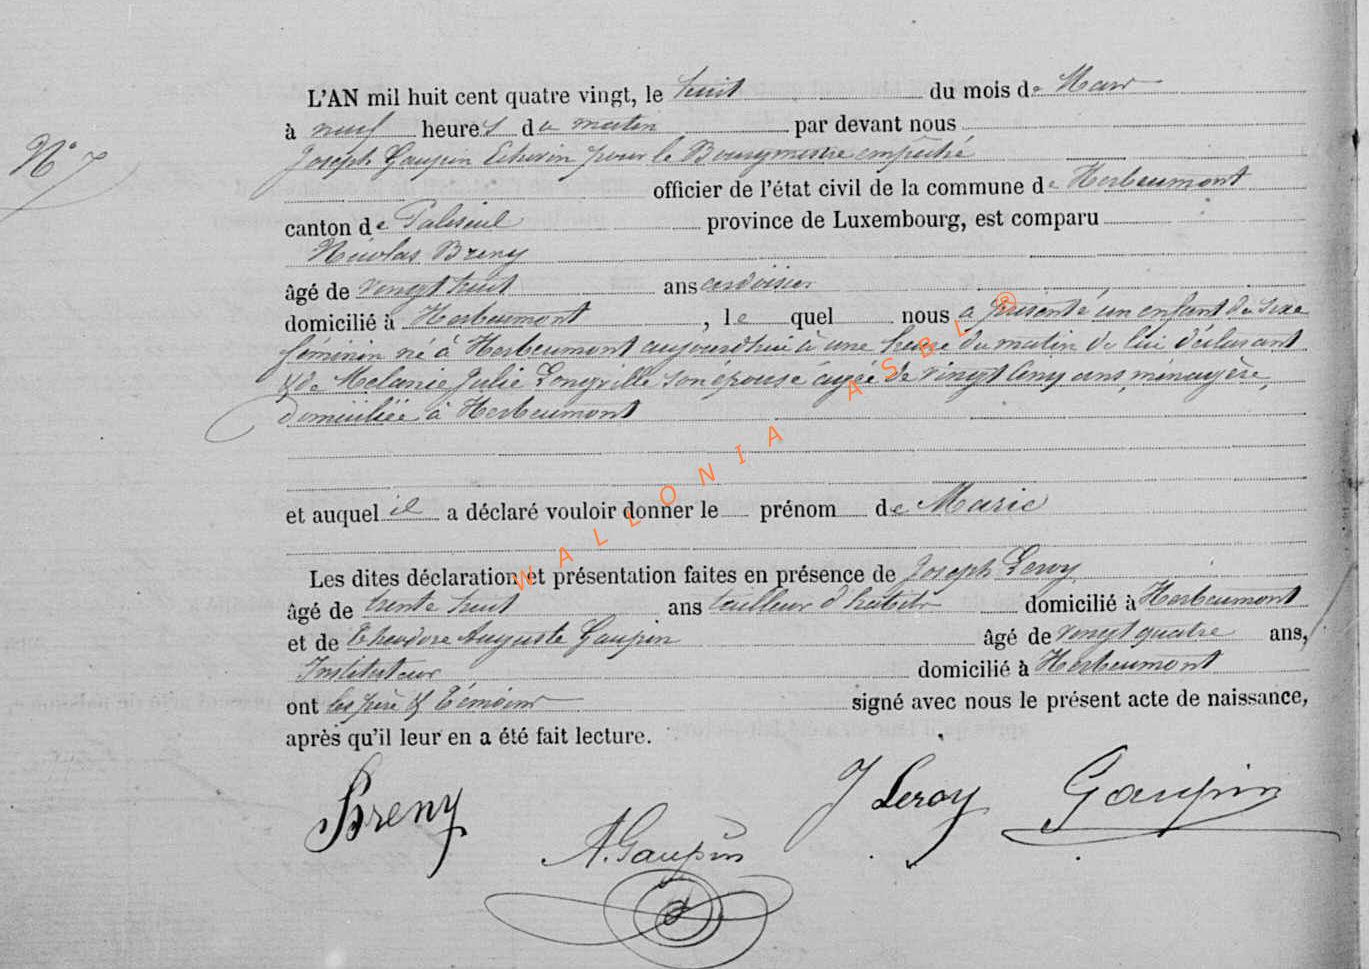 N° 7
L'AN mil huit cent quatre vingt, le huit du mois de Mars
à neuf heures du matin par devant nous
Joseph Gaupin Echevin pour le Bourgmestre empêché
officier de l'état civil de la commune de Herbeumont
canton de Paliseul province de Luxembourg, est comparu
Nicolas Breny
âgé de vingt huit ans ardoisier
domicilié à Herbeumont, le quel nous a présenté un enfant du sexe
féminin né à Herbeumont aujourdhui à une heure du matin de lui déclarant
& de Melanie Julie Longville son épouse âgée de vingt cinq ans, ménagère,
domiciliée à Herbeumont
et auquel il a déclaré vouloir donner le prénom de Marie
Les dites déclaration et présentation faites en présence de Joseph Leroy
âgé de trente huit ans tailleur d'habits domicilié à Herbeumont
et de Théodore Auguste Gaupin âgé de vingt quatre ans,
Instituteur domicilié à Herbeumont
ont les père & témoins signé avec nous le présent acte de naissance,
après qu'il leur en a été fait lecture.
Breny A. Gaupin J Leroy Gaupin
WALLONIA ASBL ®